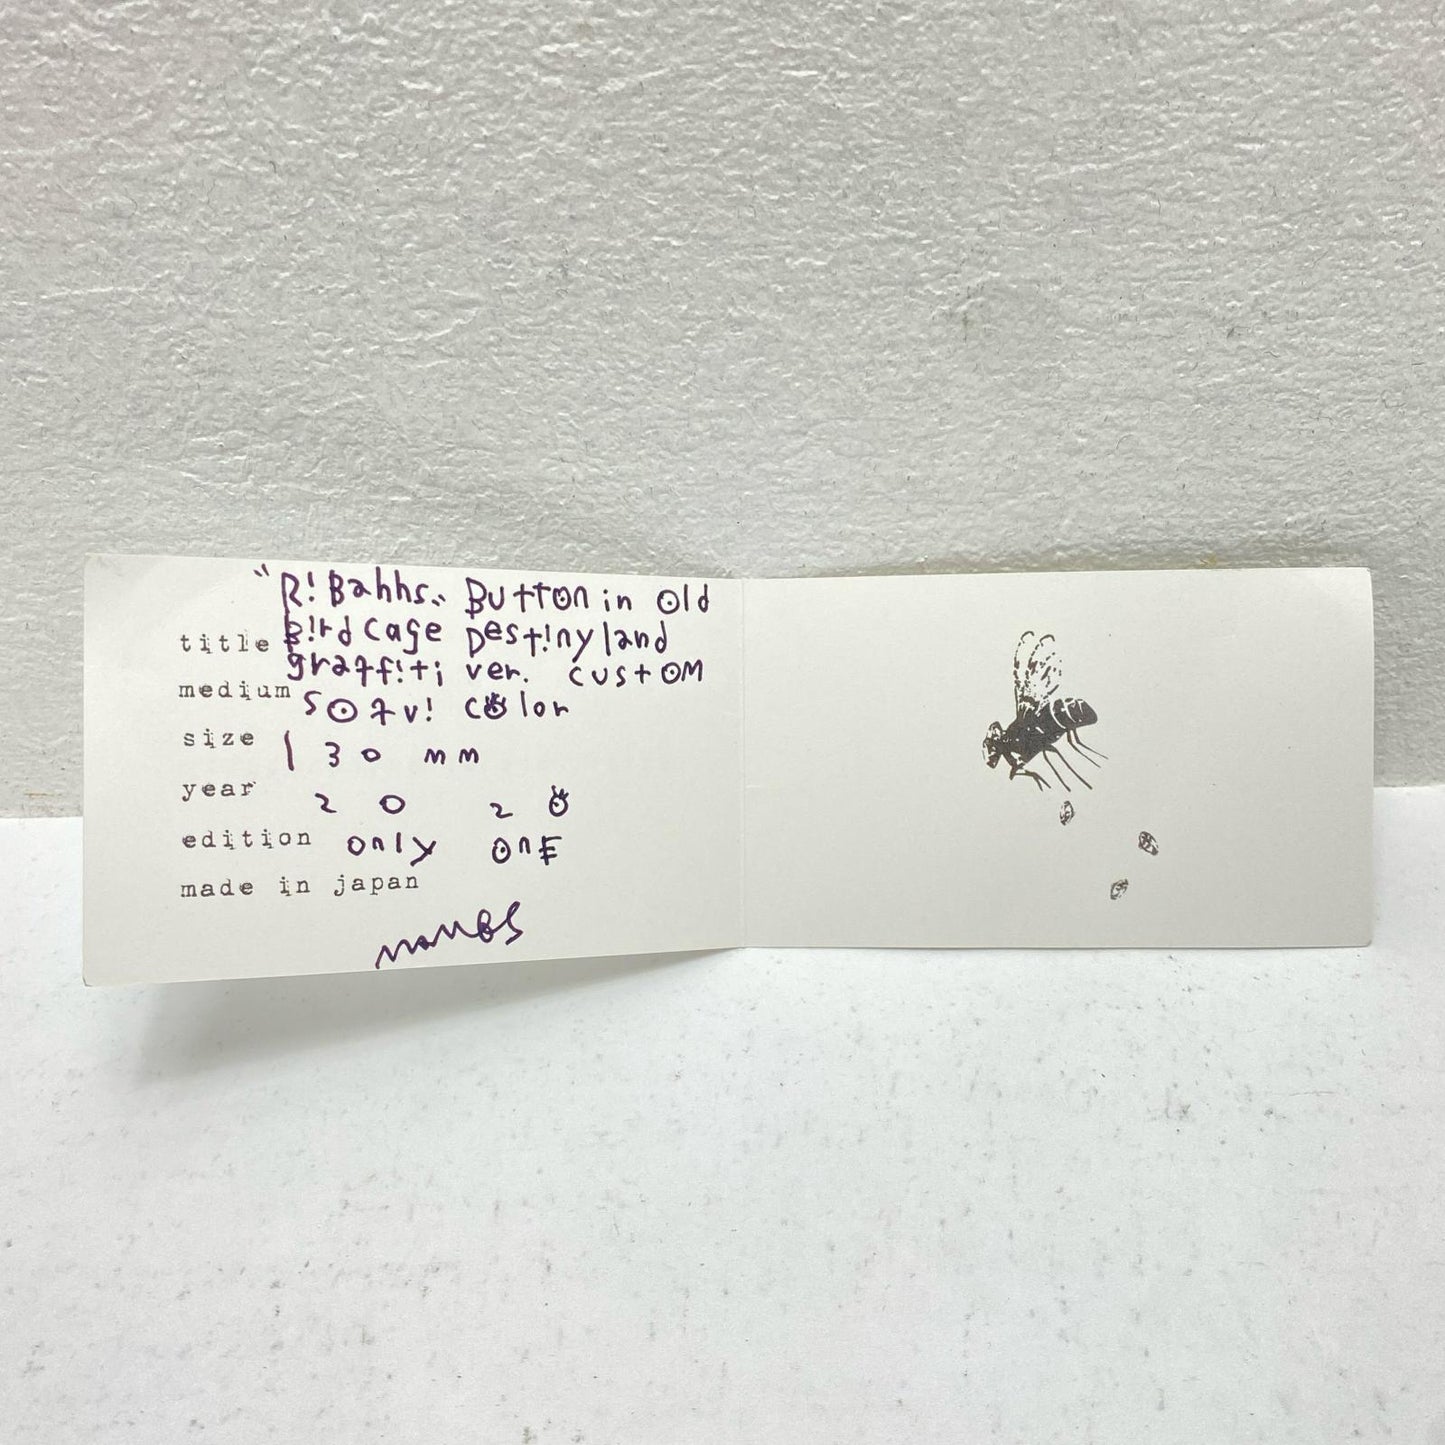 "R!Bahhs" Button in old
title B!rdcage Dest!nyland
graff!ti ver. custom
medium sofv! color
size 130 mm
year 2020
edition only one
made in japan